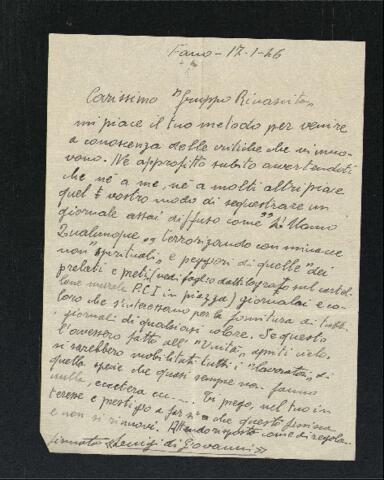 Fano - 17-1-46
Carissimo "Gruppo Rinascita"
mi piace il tuo metodo per venire
a conoscenza delle critiche che vi muo-
vono. Ne approfitto subito avvertendoti
che né a me, né a molti altri piace
quel vostro modo di sequestrare un
giornale assai diffuso come "L'Uomo
Qualunque" terrorizzando con minacce
non "spirituali" e peggiori di quelle "dei
prelati e preti" (vedi foglio dattilografo sul cartel-
lone murale P.C.I in piazza) giornalai e co-
loro che s'interessano per la fornitura di tutti
i giornali di qualsiasi colore. Se questo
l'avessero fatto all' "Unità", apriti cielo.
si sarebbero mobilitati tutti i "lavoratori" di
quella specie che quasi sempre non fanno
nulla, eccetera ecc..... Ti prego, nel tuo in-
teresse e prestigio a far sì che questo
e non si rinnovi. Attendo risposta come di regola.
firmato "Luigi di Giovanni"